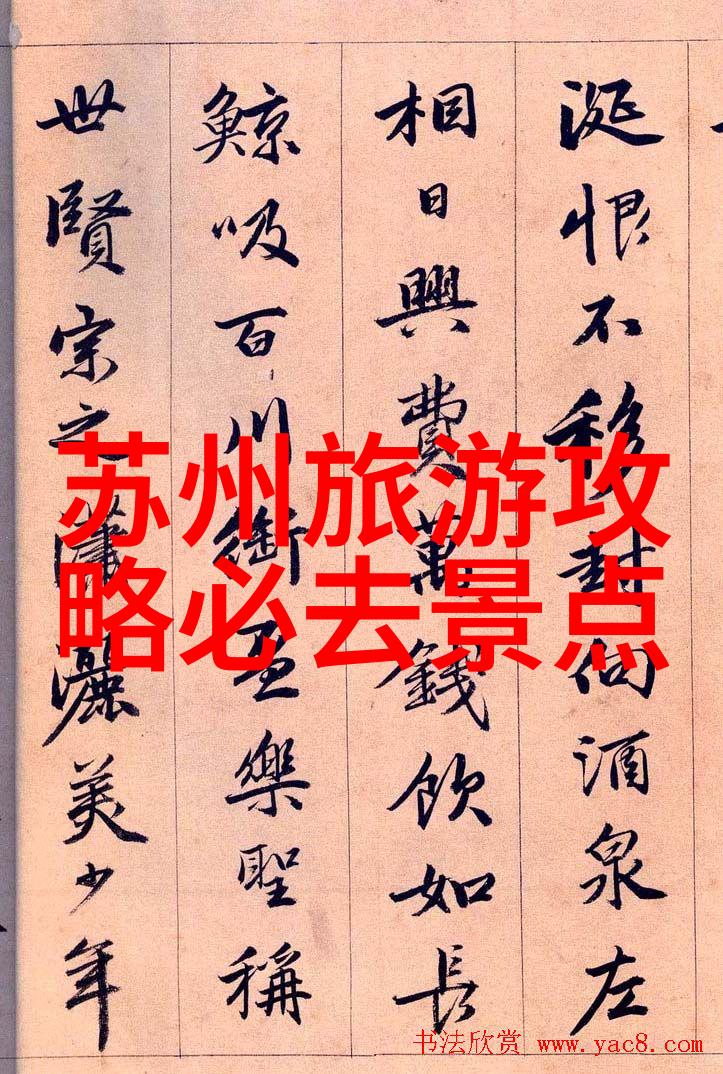 涎恨不移封向酒泉左
相日興費萬錢飲如長
鯨吸百川銜盃樂聖稱
世賢宗之瀟灑美少年
苏州旅游攻
略必去景点
书法欣赏 www.yac8.com